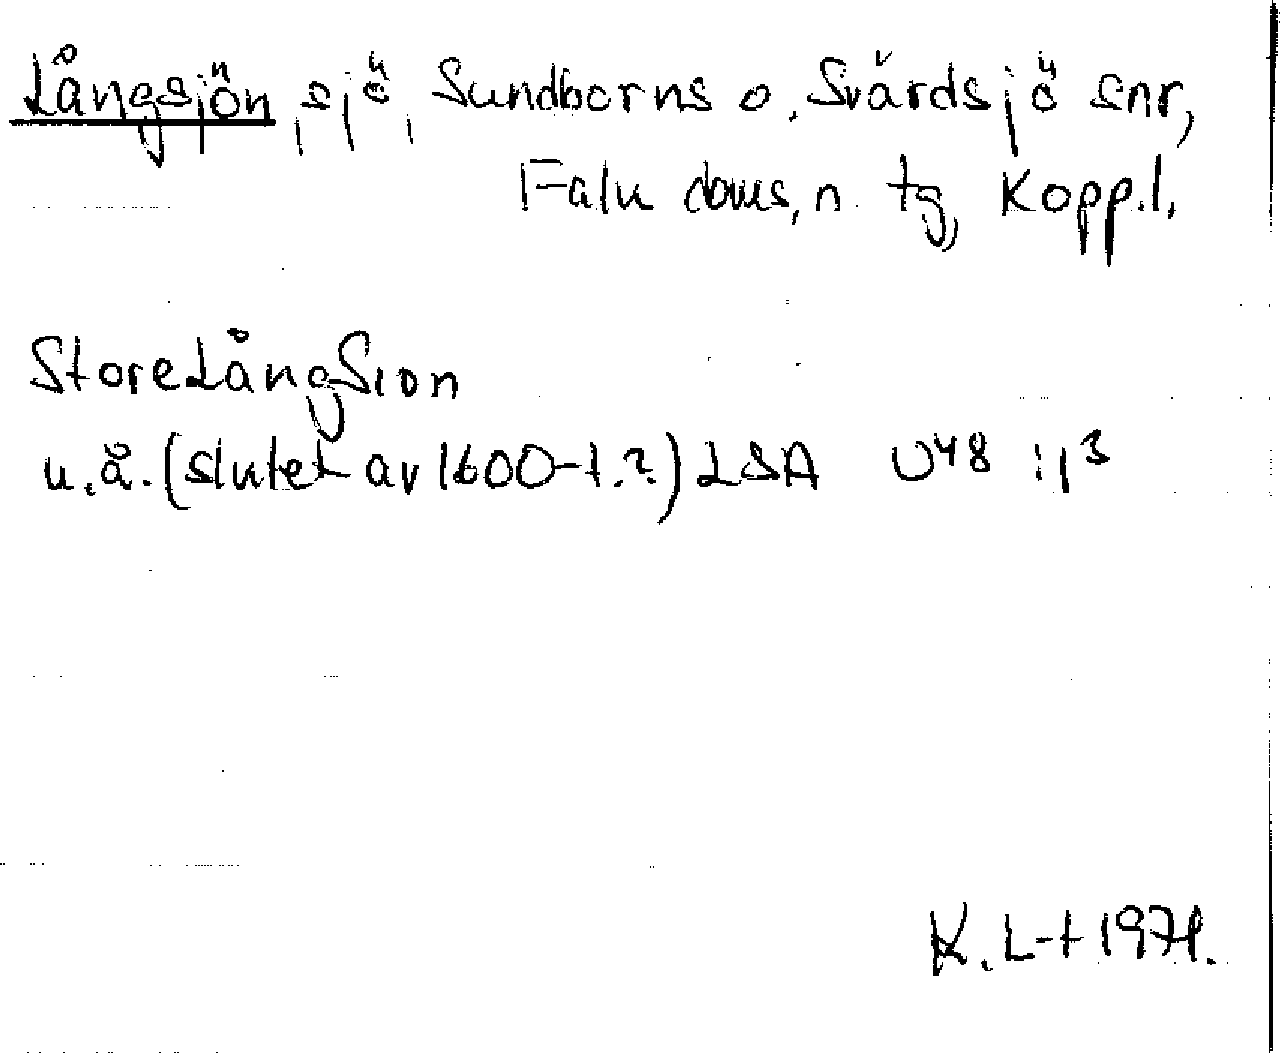 Långsjön, sjö, Sundborns o. Svärdsjö snr,
Falu doms. n. tg, Kopp.l.
StoreLångSion
u.å. (slutet av 1600-t.?) LSA U48 :1³
K. L-t 1971.